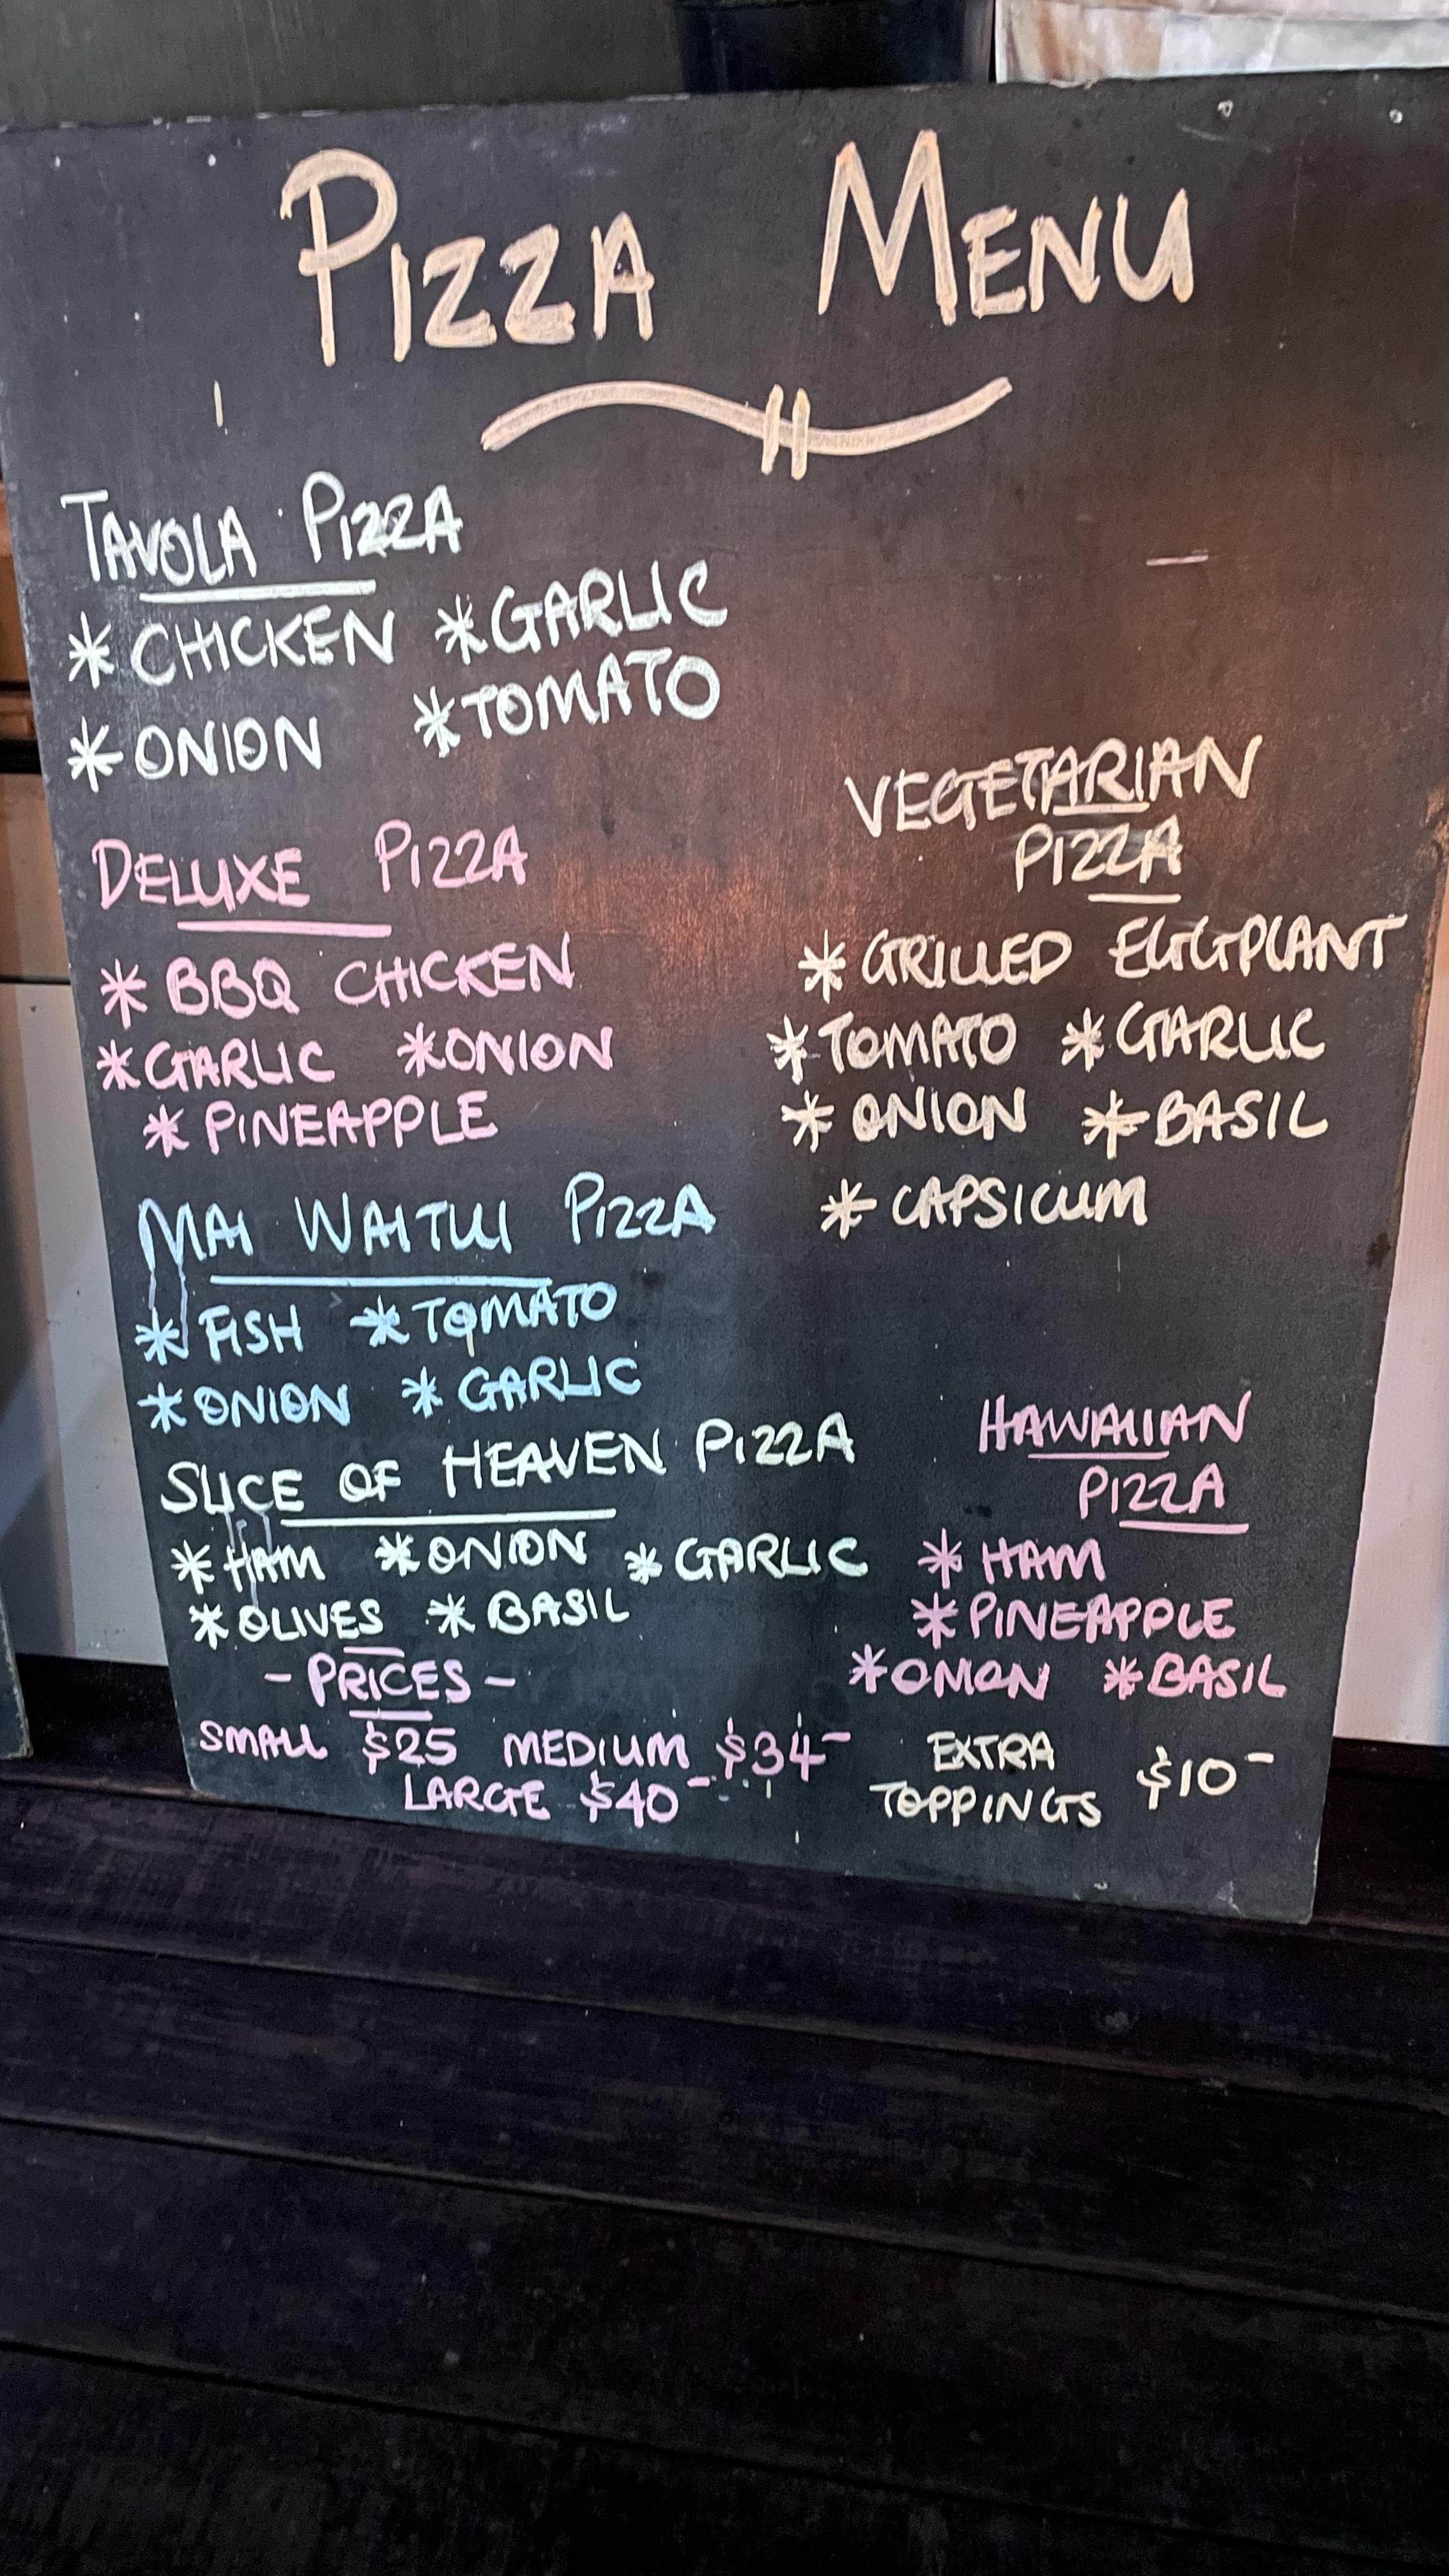 PIZZA MENU
TAVOLA PIZZA
* CHICKEN * GARLIC
* ONION * TOMATO
DELUXE PIZZA
* BBQ CHICKEN
* GARLIC * ONION
* PINEAPPLE
MAI WAITUI PIZZA
* FISH * TOMATO
* ONION * GARLIC
SLICE OF HEAVEN PIZZA
* HAM * ONION * GARLIC
* OLIVES * BASIL
VEGETARIAN
PIZZA
* GRILLED EGGPLANT
* TOMATO * GARLIC
* ONION * BASIL
* CAPSICUM
HAWAIIAN
PIZZA
* HAM
* PINEAPPLE
* ONION * BASIL
- PRICES -
SMALL $25 MEDIUM $34-
LARGE $40-
EXTRA
TOPPINGS $10-